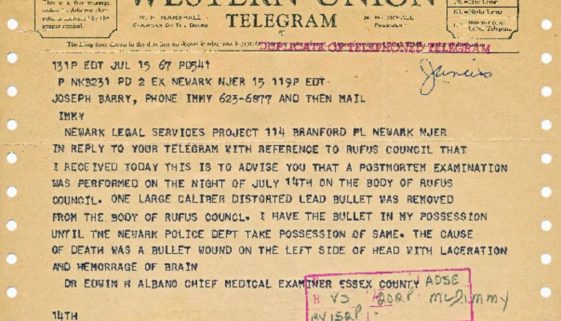 WESTERN UNION
TELEGRAM
W. P. MARSHALL
CHAIRMAN OF THE BOARD
PRESIDENT
DUPLICATE OF TELEPHONED TELEGRAM
131P EDT JUL 15 67 PD541
P NKB231 PD 2 EX NEWARK NJER 15 119P EDT
JOSEPH BARRY, PHONE IMMY 623-6877 AND THEN MAIL
IMMY
NEWARK LEGAL SERVICES PROJECT 114 BRANFORD PL NEWARK NJER
IN REPLY TO YOUR TELEGRAM WITH REFERENCE TO RUFUS COUNCIL THAT
I RECEIVED TODAY THIS IS TO ADVISE YOU THAT A POSTMORTEM EXAMINATION
WAS PERFORMED ON THE NIGHT OF JULY 14TH ON THE BODY OF RUFUS
COUNCIL. ONE LARGE CALIBER DISTORTED LEAD BULLET WAS REMOVED
FROM THE BODY OF RUFUS COUNCL. I HAVE THE BULLET IN MY POSSESSION
UNTIL THE NEWARK POLICE DEPT TAKE POSSESSION OF SAME. THE CAUSE
OF DEATH WAS A BULLET WOUND ON THE LEFT SIDE OF HEAD WITH LACERATION
AND HEMORRAGE OF BRAIN
DR EDWIN H ALBANO CHIEF MEDICAL EXAMINER ESSEX COUNTY
14TH